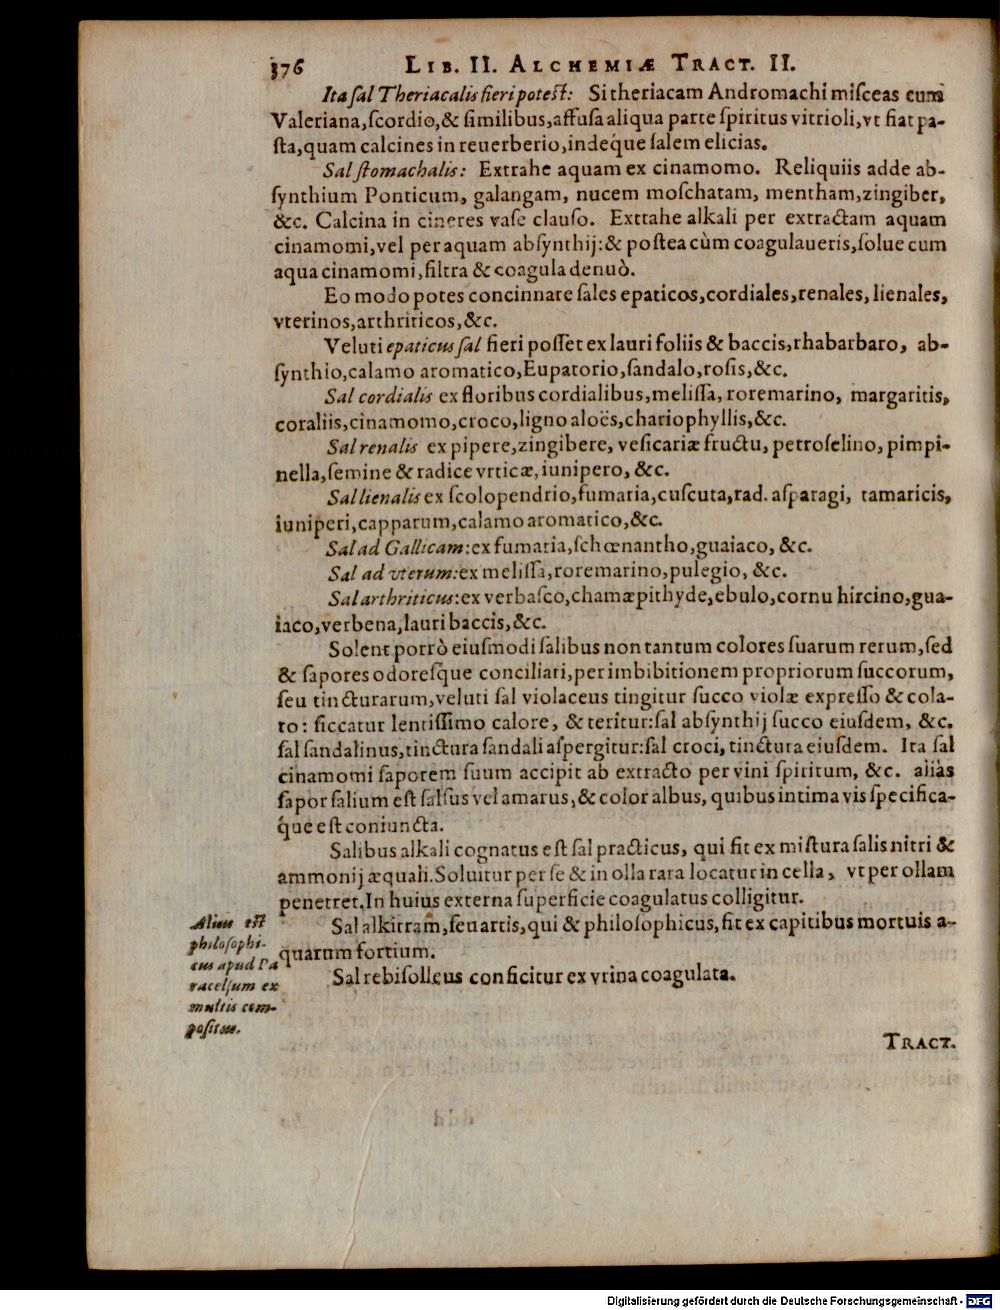 376 LIB. II. ALCHEMIÆ TRACT. II.
Ita ſal Theriacalis fieri poteſt: Si theriacam Andromachi miſceas cum
Valeriana, ſcordio, & ſimilibus, affuſa aliqua parte ſpiritus vitrioli, vt fiat pa-
ſta, quam calcines in reuerberio, indéque ſalem elicias.
Sal ſtomachalis: Extrahe aquam ex cinamomo. Reliquiis adde ab-
ſynthium Ponticum, galangam, nucem moſchatam, mentham, zingiber,
&c. Calcina in cineres vaſe clauſo. Exttahe alkali per extractam aquam
cinamomi, vel per aquam abſynthij: & poſtea cùm coagulaueris, ſolue cum
aqua cinamomi, filtra & coagula denuò.
Eo modo potes concinnare ſales epaticos, cordiales, renales, lienales,
vterinos, arthriticos, &c.
Veluti epaticus ſal fieri poſſet ex lauri foliis & baccis, rhabarbaro, ab-
ſynthio, calamo aromatico, Eupatorio, ſandalo, roſis, &c.
Sal cordialis ex floribus cordialibus, meliſſa, roremarino, margaritis,
coraliis, cinamomo, croco, ligno aloës, chariophyllis, &c.
Sal renalis ex pipere, zingibere, veſicariæ fructu, petroſelino, pimpi-
nella, ſemine & radice vrticæ, iunipero, &c.
Sal lienalis ex ſcolopendrio, fumaria, cuſcuta, rad. aſparagi, tamaricis,
iuniperi, capparum, calamo aromatico, &c.
Sal ad Gallicam: ex fumaria, ſchœnantho, guaiaco, &c.
Sal ad vterum: ex meliſſa, roremarino, pulegio, &c.
Sal arthriticus: ex verbaſco, chamæpithyde, ebulo, cornu hircino, gua-
iaco, verbena, lauri baccis, &c.
Solent porrò eiuſmodi ſalibus non tantum colores ſuarum rerum, ſed
& ſapores odoreſq́ue conciliari, per imbibitionem propriorum ſuccorum,
ſeu tincturarum, veluti ſal violaceus tingitur ſucco violæ expreſſo & cola-
to: ſiccatur lentiſſimo calore, & teritur: ſal abſynthij ſucco eiuſdem, &c.
ſal ſandalinus, tinctura ſandali aſpergitur: ſal croci, tinctura eiuſdem. Ita ſal
cinamomi ſaporem ſuum accipit ab extracto per vini ſpiritum, &c. aliàs
ſapor ſalium eſt ſalſus vel amarus, & color albus, quibus intima vis ſpecifica-
q́ue eſt coniuncta.
Salibus alkali cognatus eſt ſal practicus, qui fit ex miſtura ſalis nitri &
ammonij æquali. Soluitur per ſe & in olla rara locatur in cella, vt per ollam
penetret. In huius externa ſuperficie coagulatus colligitur.
Sal alkitram, ſeu artis, qui & philoſophicus, fit ex capitibus mortuis a-
quarum fortium.
Sal rebiſolleus conficitur ex vrina coagulata.
Alius eſt
philoſophi-
cus apud Pa
racelſum ex
multis com-
poſitus.
TRACT.
Digitalisierung gefördert durch die Deutsche Forschungsgemeinschaft - DFG